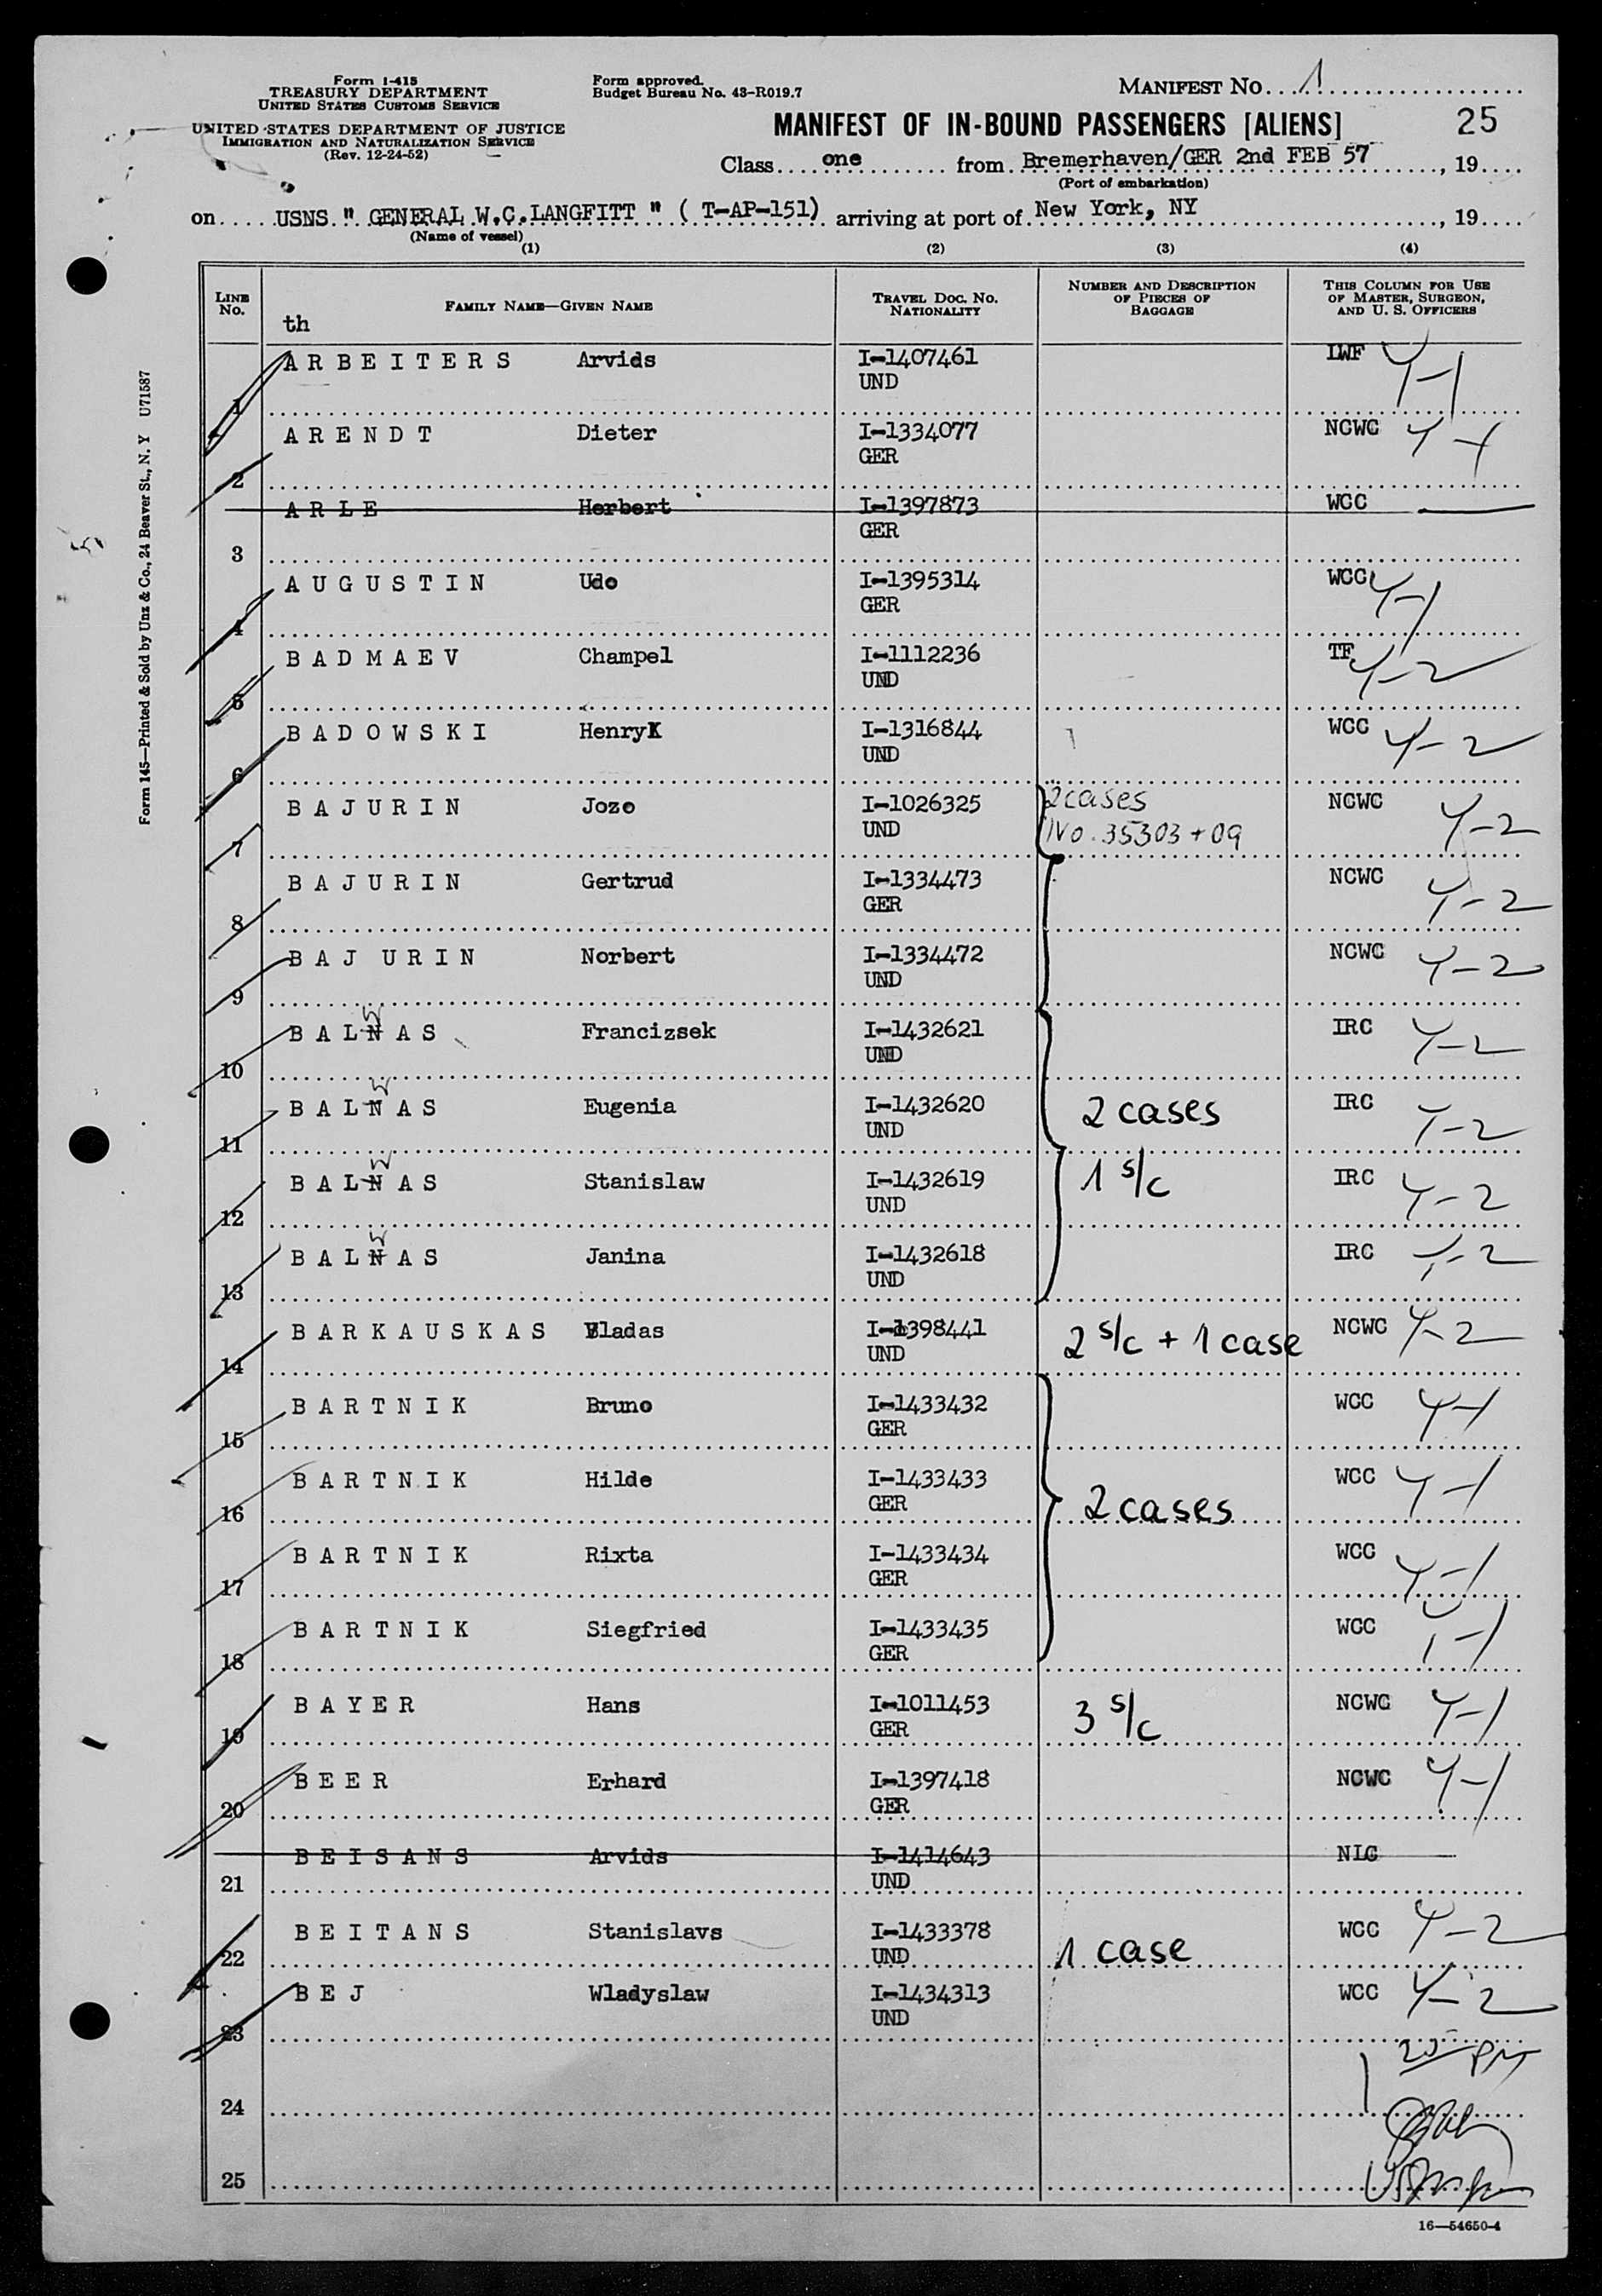 Form I-415
TREASURY DEPARTMENT
UNITED STATES CUSTOMS SERVICE
UNITED STATES DEPARTMENT OF JUSTICE
IMMIGRATION AND NATURALIZATION SERVICE
(Rev. 12-24-52)
Form approved.
Budget Bureau No. 43-R019.7
MANIFEST NO. 1
MANIFEST OF IN-BOUND PASSENGERS [ALIENS] 25
Class one from Bremerhaven/GER 2nd FEB 57, 19
(Port of embarkation)
on USNS " GENERAL W.C.LANGFITT " ( T-AP-151) arriving at port of New York, NY, 19
(Name of vessel)
(1) (2) (3) (4)
LINE NO. FAMILY NAME—GIVEN NAME TRAVEL DOC. NO. NATIONALITY NUMBER AND DESCRIPTION OF PIECES OF BAGGAGE THIS COLUMN FOR USE OF MASTER, SURGEON, AND U. S. OFFICERS
th
ARBEITERS Arvids I-1407461 LWF Y-1
1 UND
ARENDT Dieter I-1334077 NCWC Y-1
2 GER
ARLE Herbert I-1397873 WCC
3 GER
AUGUSTIN Udo I-1395314 WCC Y-1
4 GER
BADMAEV Champel I-1112236 TF Y-2
5 UND
BADOWSKI HenryK I-1316844 WCC Y-2
6 UND
BAJURIN Jozo I-1026325 2 cases NCWC Y-2
7 UND No. 35303 + 09
BAJURIN Gertrud I-1334473 NCWC Y-2
8 GER
BAJ URIN Norbert I-1334472 NCWC Y-2
9 UND
W
BALNAS Francizsek I-1432621 IRC Y-2
10 UND
W
BALNAS Eugenia I-1432620 2 cases IRC Y-2
11 UND
W
BALNAS Stanislaw I-1432619 1 s/c IRC Y-2
12 UND
W
BALNAS Janina I-1432618 IRC Y-2
13 UND
BARKAUSKAS Vladas I-1398441 2 s/c + 1 case NCWC Y-2
14 UND
BARTNIK Bruno I-1433432 WCC Y-1
15 GER
BARTNIK Hilde I-1433433 2 cases WCC Y-1
16 GER
BARTNIK Rixta I-1433434 WCC Y-1
17 GER
BARTNIK Siegfried I-1433435 WCC Y-1
18 GER
BAYER Hans I-1011453 3 s/c NCWC Y-1
19 GER
BEER Erhard I-1397418 NCWC Y-1
20 GER
BEISANS Arvids I-1414643 NLC
21 UND
BEITANS Stanislavs I-1433378 1 case WCC Y-2
22 UND
BEJ Wladyslaw I-1434313 WCC Y-2
23 UND
24
25
16—54650-4
Form 145—Printed & Sold by Unz & Co., 24 Beaver St., N. Y U71587